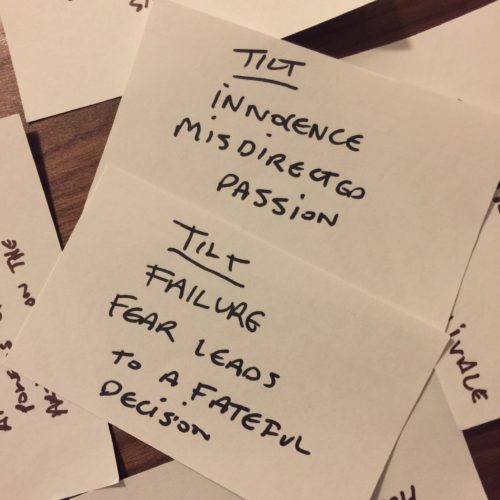 TILT
INNOCENCE
MISDIRECTED
PASSION
TILT
FAILURE
FEAR LEADS
TO A FATEFUL
DECISION
ON THE